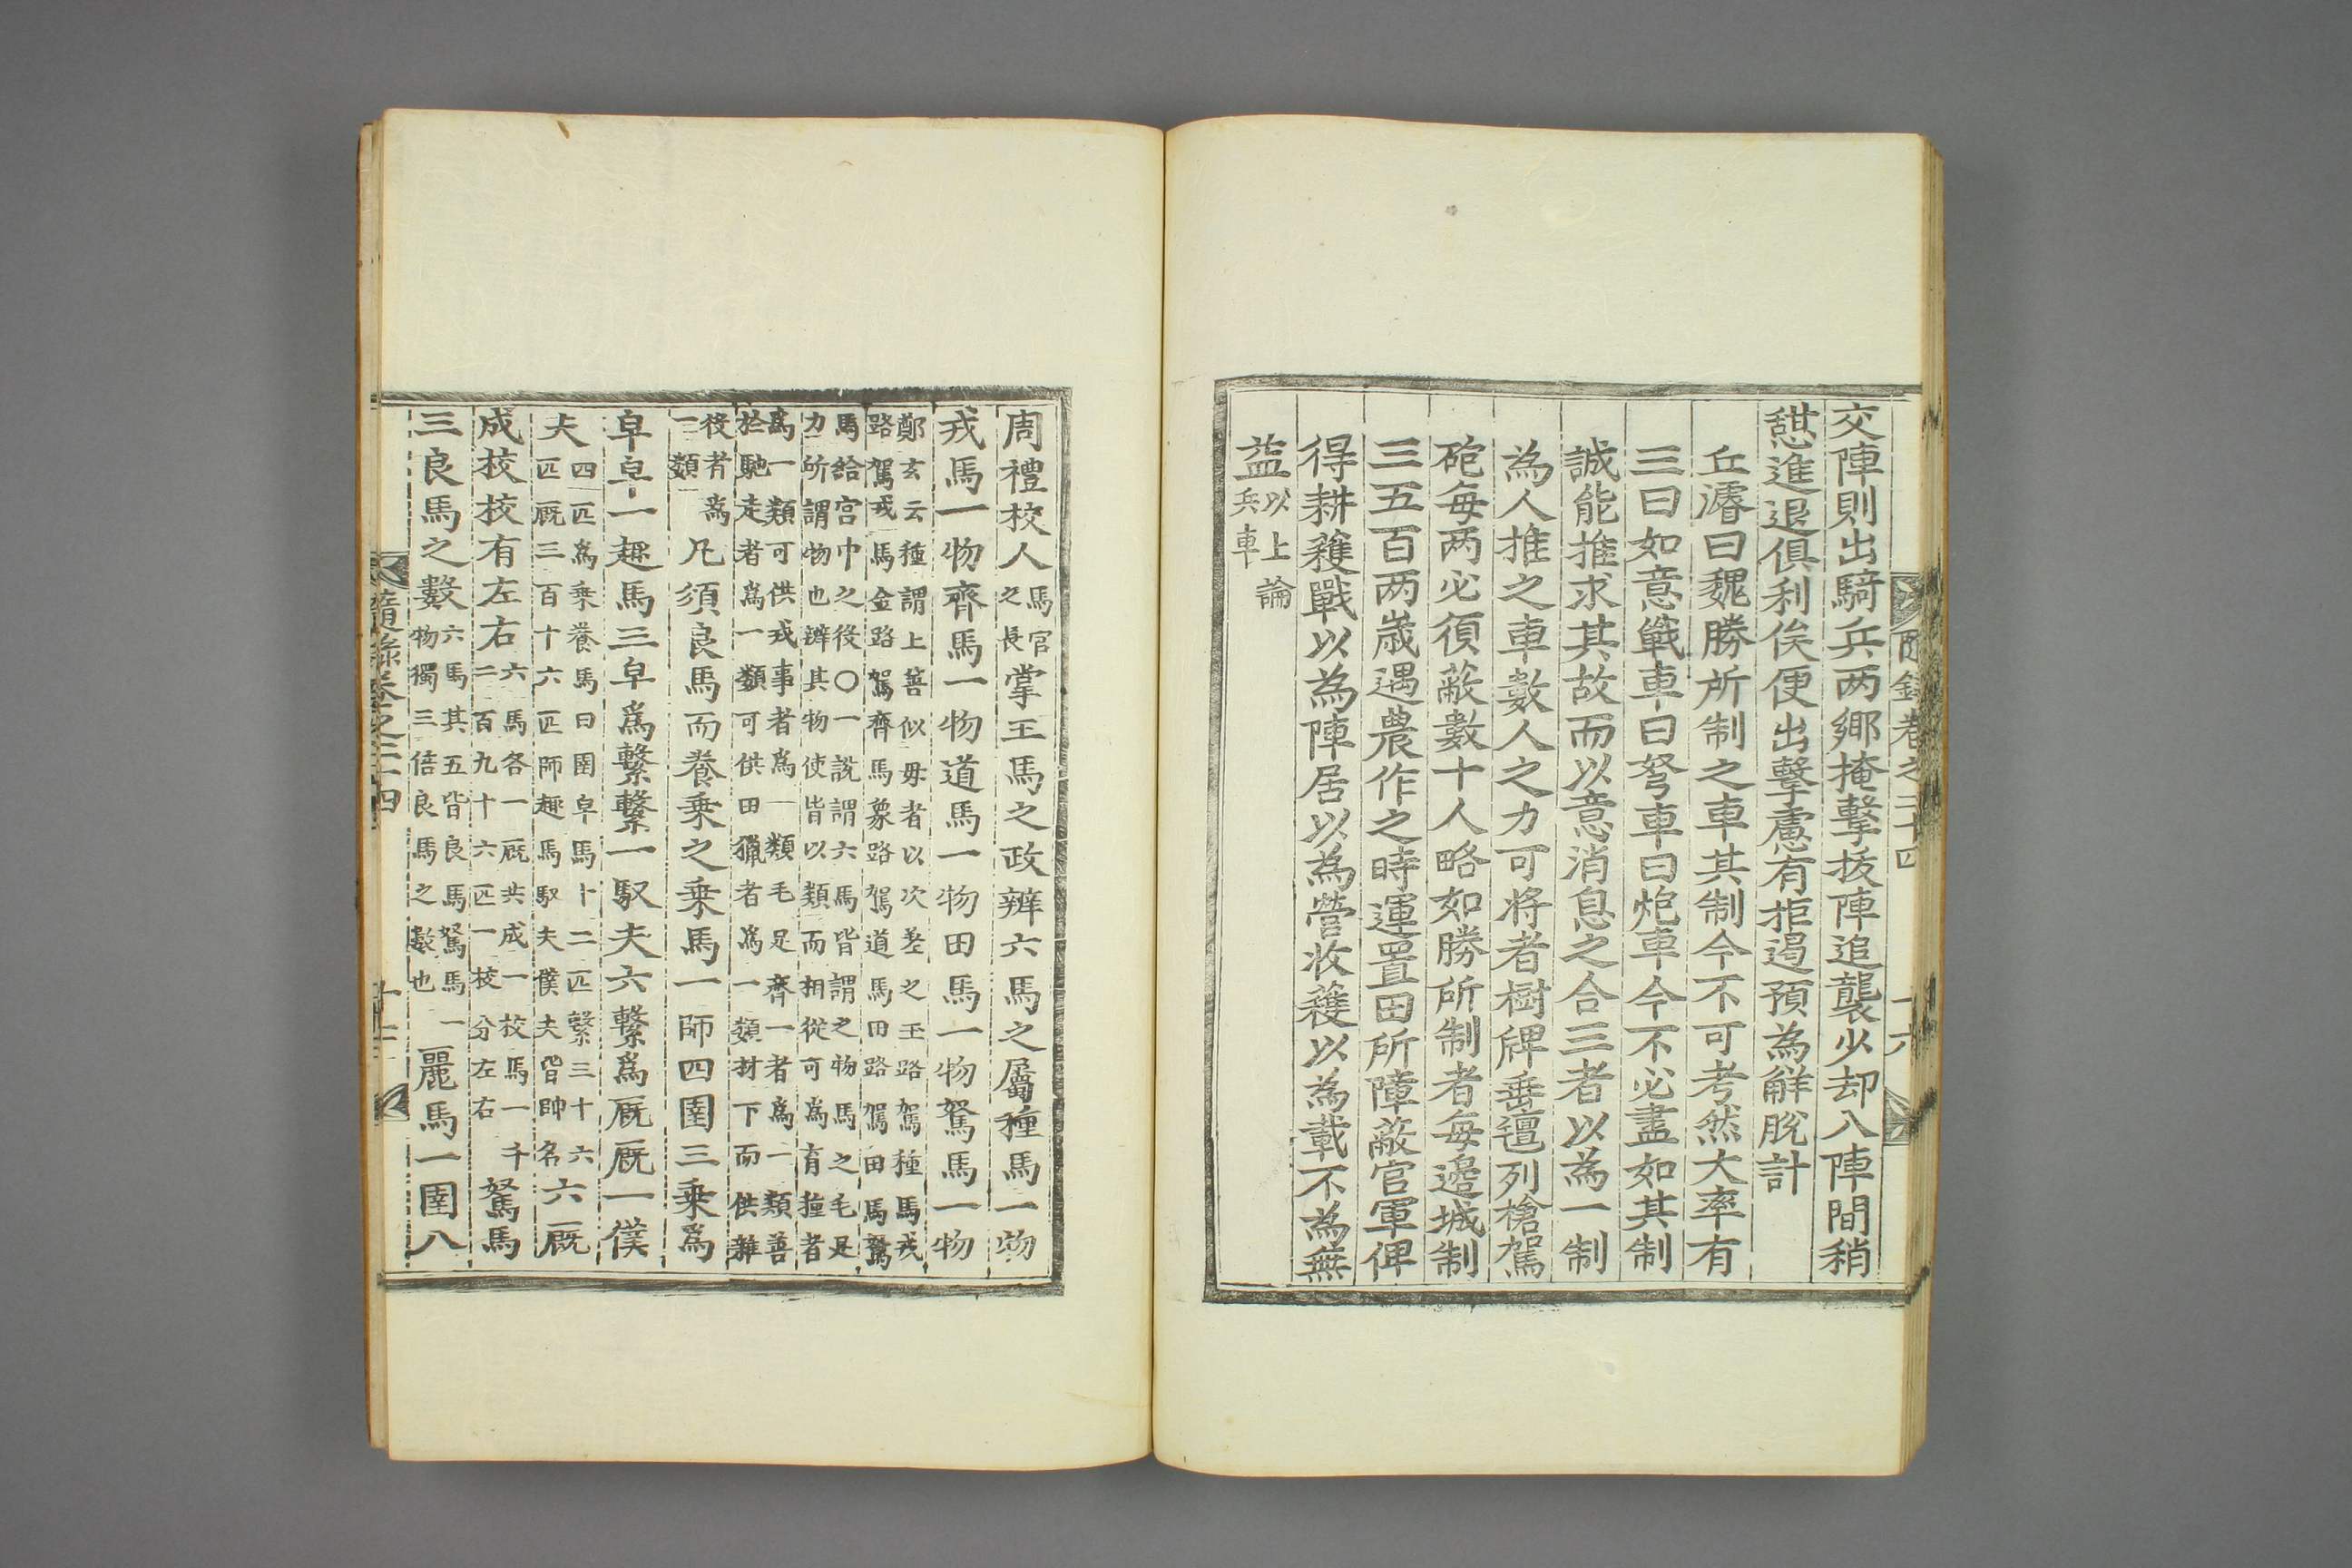 交陣則出騎兵两鄉掩擊拔陣追襲少却入陣間稍
憇進退俱利俟便出擊慮有拒遏預為觧脫計
丘濬曰魏勝所制之車其制今不可考然大率有
三曰如意戰車曰弩車曰炮車今不必盡如其制
誠能推求其故而以意消息之合三者以為一制
為人推之車數人之力可将者樹牌垂氊列槍駕
砲每两必須蔽數十人略如勝所制者每邉城制
三五百两嵗遇農作之時運置田所障蔽官軍俾
得耕穫戰以為陣居以為營收穫以為載不為無
益以上論兵車
周禮校人馬官之長掌王馬之政辨六馬之屬種馬一物
戎馬一物齊馬一物道馬一物田馬一物駑馬一物
鄭玄云種謂上善似母者以次差之玉路駕種馬戎
路駕戎馬金路駕齊馬象路駕道馬田路駕田馬駑
馬給宮中之役〇一說謂六馬皆謂之物馬之毛足
力所謂物也辨其物使皆以類而相從可為育種者
爲一類可供戎事者爲一類毛足齊一者爲一類善
於馳走者爲一類可供田獵者爲一類材下而供雜
役者爲
一類
凡須良馬而養乘之乘馬一師四圉三乘爲
皁皁一趣馬三皁爲繫繫一馭夫六繫爲厩厩一僕
夫四匹爲乘養馬曰圉皁馬十二匹繫三十六
匹厩三百十六匹師趣馬馭夫僕夫皆帥名六厩
成校校有左右六馬各一厩共成一校馬一千
二百九十六匹一校分左右駑馬
三良馬之數六馬其五皆良馬駑馬一
物獨三倍良馬之數也麗馬一圉八
隨錄卷之二十四